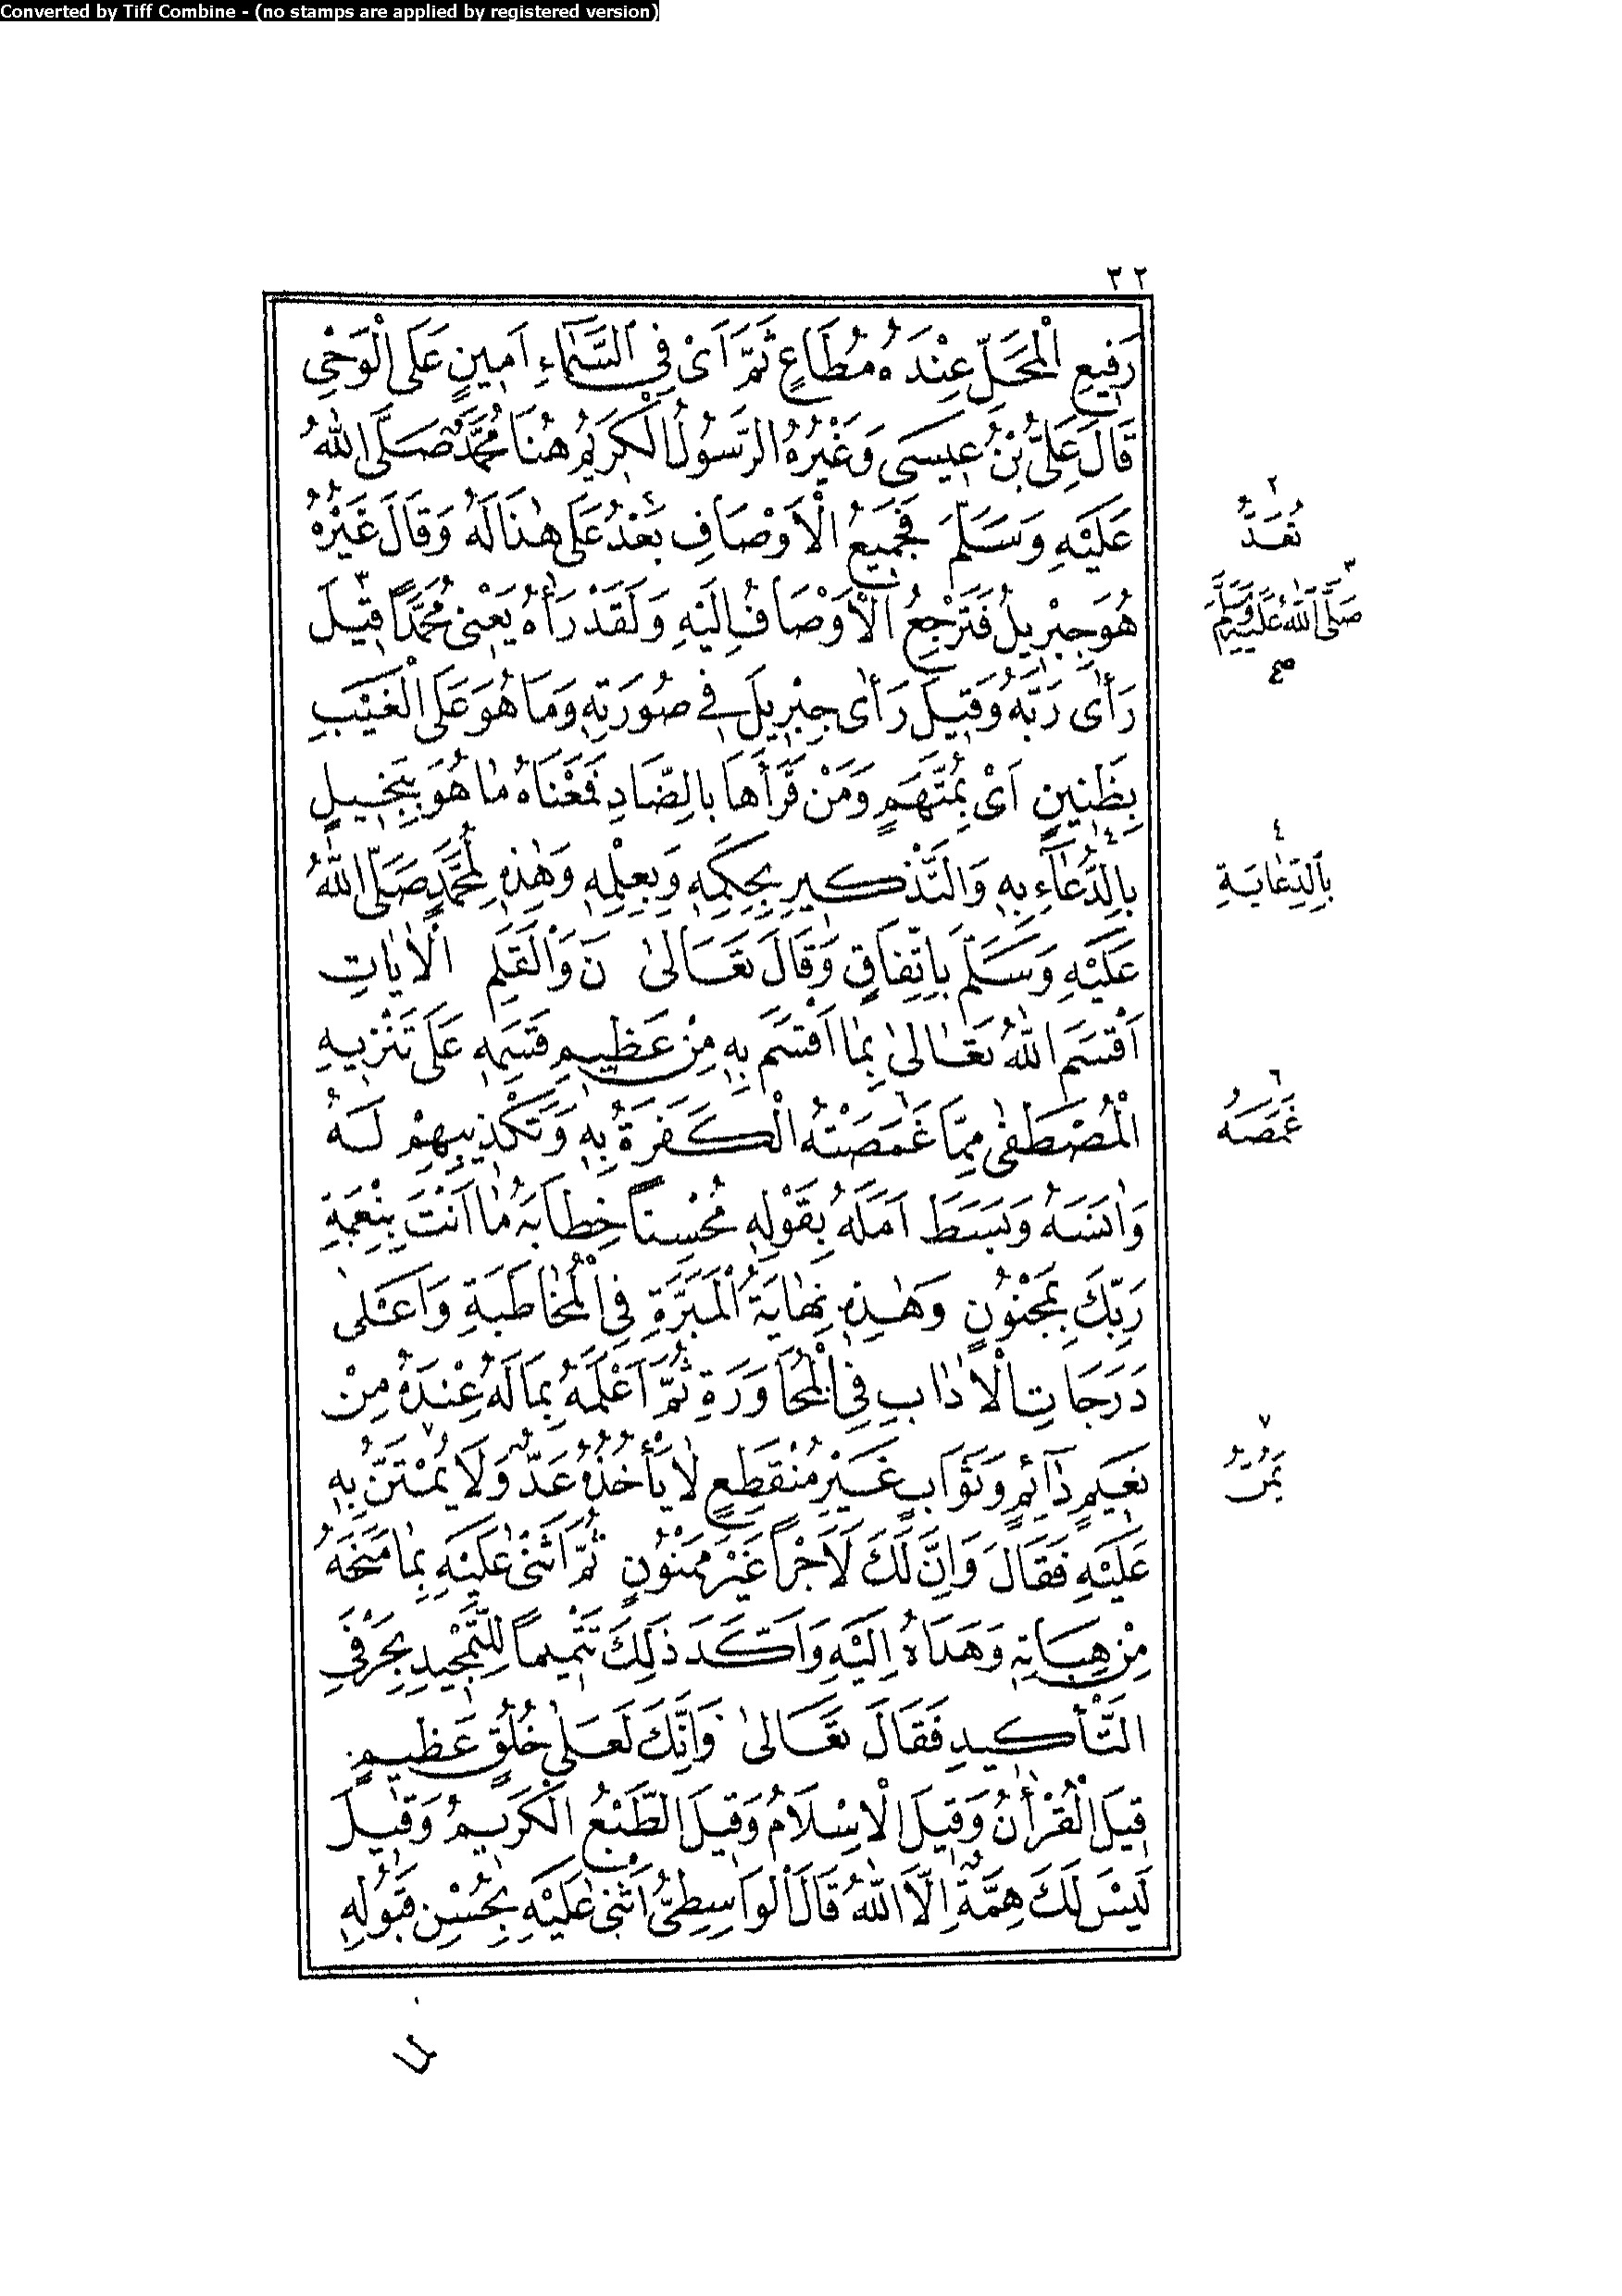 Converted by Tiff Combine - (no stamps are applied by registered version)
٣٢
رَفِيعِ الْمَحَلِّ عِنْدَهُ مُطَاعٍ ثَمَّ اَىْ فِى السَّمَاءِ اَمِينٍ عَلَى الْوَحْىِ
قَالَ عَلِىُّ بْنُ عِيسَى وَغَيْرُهُ الرَّسُولُ الْكَرِيمُ هُنَا مُحَمَّدٌ صَلَّى اللهُ
عَلَيْهِ وَسَلَّمَ فَجَمِيعُ الْاَوْصَافِ بَعْدُ عَلَى هٰذَا لَهُ وَقَالَ غَيْرُهُ
هُوَ جِبْرِيلُ فَتَرْجِعُ الْاَوْصَافُ اِلَيْهِ وَلَقَدْ رَاٰهُ يَعْنِى مُحَمَّدًا قِيلَ
رَأٰى رَبَّهُ وَقِيلَ رَأٰى جِبْرِيلَ فِى صُورَتِهِ وَمَا هُوَ عَلَى الْغَيْبِ
بِظَنِينٍ اَىْ بِمُتَّهَمٍ وَمَنْ قَرَأَهَا بِالضَّادِ فَمَعْنَاهُ مَا هُوَ بِبَخِيلٍ
بِالدُّعَاءِ بِهِ وَالتَّذْكِيرِ بِحِكَمِهِ وَبِعِلْمِهِ وَهٰذِهِ لِمُحَمَّدٍ صَلَّى اللهُ
عَلَيْهِ وَسَلَّمَ بِاتِّفَاقٍ وَقَالَ تَعَالىٰ نَ وَالْقَلَمِ الْاٰيَاتِ
اَقْسَمَ اللهُ تَعَالىٰ بِمَا اَقْسَمَ بِهِ مِنْ عَظِيمِ قَسَمِهِ عَلَى تَنْزِيهِ
الْمُصْطَفٰى مِمَّا غَمَصَتْهُ الْكَفَرَةُ بِهِ وَتَكْذِيبِهِمْ لَهُ
وَاٰنَسَهُ وَبَسَطَ اَمَلَهُ بِقَوْلِهِ مُحْسِنًا خِطَابَهُ مَا اَنْتَ بِنِعْمَةِ
رَبِّكَ بِمَجْنُونٍ وَهٰذِهِ نِهَايَةُ الْمَبَرَّةِ فِى الْمُخَاطَبَةِ وَاَعْلٰى
دَرَجَاتِ الْاٰدَابِ فِى الْمُحَاوَرَةِ ثُمَّ اَعْلَمَهُ بِمَا لَهُ عِنْدَهُ مِنْ
نَعِيمٍ دَائِمٍ وَثَوَابٍ غَيْرِ مُنْقَطِعٍ لَا يَأْخُذُهُ عَدٌّ وَلَا يُمْتَنُّ بِهِ
عَلَيْهِ فَقَالَ وَاِنَّ لَكَ لَاَجْرًا غَيْرَ مَمْنُونٍ ثُمَّ اَثْنٰى عَلَيْهِ بِمَا مَنَحَهُ
مِنْ هِبَاتِهِ وَهَدَاهُ اِلَيْهِ وَاَكَّدَ ذٰلِكَ تَتْمِيمًا لِلتَّمْجِيدِ بِحَرْفَىِ
التَّأْكِيدِ فَقَالَ تَعَالىٰ وَاِنَّكَ لَعَلٰى خُلُقٍ عَظِيمٍ
قِيلَ الْقُرْاٰنُ وَقِيلَ الْاِسْلَامُ وَقِيلَ الطَّبْعُ الْكَرِيمُ وَقِيلَ
لَيْسَ لَكَ هِمَّةٌ اِلَّا اللهُ قَالَ الْوَاسِطِىُّ اَثْنٰى عَلَيْهِ بِحُسْنِ قَبُولِهِ
٢
تُعَدُّ
٣
صَلَّى اللهُ عَلَيْهِ وَسَلَّمَ
صح
٤
بِالدِّعَايَةِ
٦
غَمَصَهُ
٧
يُمَنُّ